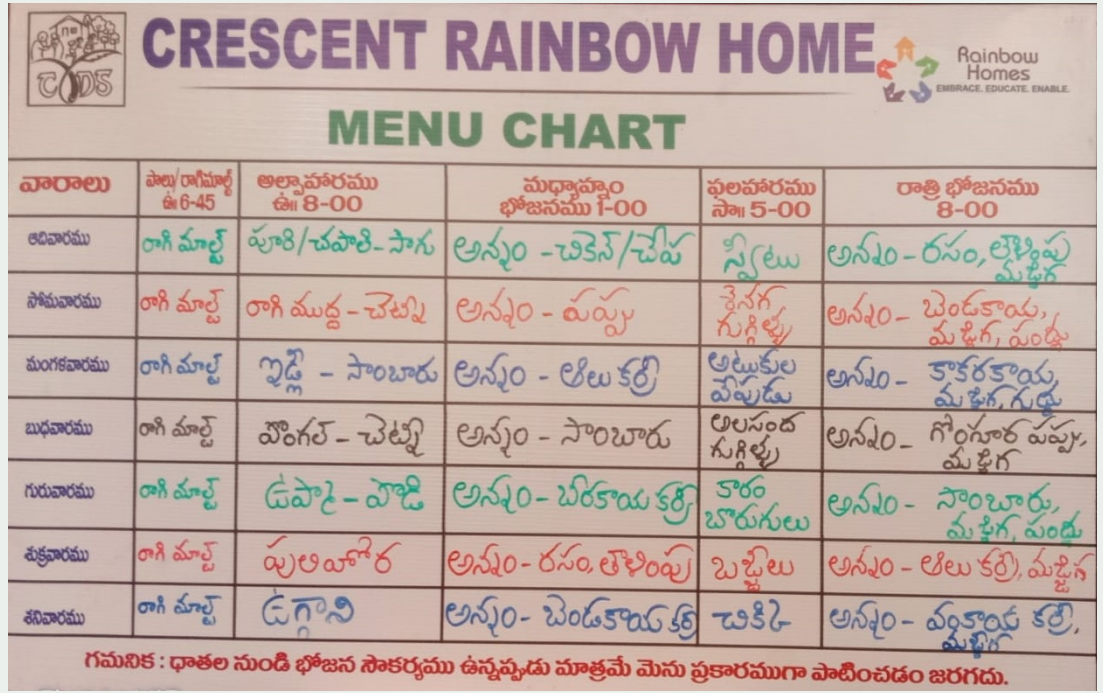 CRESCENT RAINBOW HOME
CYDS
Rainbow
Homes
EMBRACE. EDUCATE. ENABLE.
MENU CHART
వారాలు పాలు/రాగిమాల్ట్ ఉ॥ 6-45 అల్పాహారము ఉ॥ 8-00 మధ్యాహ్నం భోజనము 1-00 ఫలహారము సా॥ 5-00 రాత్రి భోజనము 8-00
ఆదివారము రాగి మాల్ట్ పూరి/చపాతి - సాగు అన్నం - చికెన్/చేప స్వీటు అన్నం - రసం, తాళింపు మజ్జిగ
సోమవారము రాగి మాల్ట్ రాగి ముద్ద - చెట్నీ అన్నం - పప్పు శెనగ గుగ్గిళ్ళు అన్నం - బెండకాయ, మజ్జిగ, పండ్లు
మంగళవారము రాగి మాల్ట్ ఇడ్లీ - సాంబారు అన్నం - ఆలు కర్రీ అటుకుల వేపుడు అన్నం - కాకరకాయ, మజ్జిగ, గుడ్డు
బుధవారము రాగి మాల్ట్ పొంగల్ - చెట్నీ అన్నం - సాంబారు అలసంద గుగ్గిళ్ళు అన్నం - గోంగూర పప్పు, మజ్జిగ
గురువారము రాగి మాల్ట్ ఉప్మా - పొడి అన్నం - బీరకాయ కర్రీ కారం బొరుగులు అన్నం - సాంబారు, మజ్జిగ, పండ్లు
శుక్రవారము రాగి మాల్ట్ పులిహోర అన్నం - రసం, తాళింపు బజ్జీలు అన్నం - ఆలు కర్రీ, మజ్జిగ
శనివారము రాగి మాల్ట్ ఉగ్గాని అన్నం - బెండకాయ కర్రీ చికికి అన్నం - వంకాయ కర్రీ, మజ్జిగ
గమనిక : ధాతల నుండి భోజన సౌకర్యము ఉన్నప్పుడు మాత్రమే మెను ప్రకారముగా పాటించడం జరగదు.